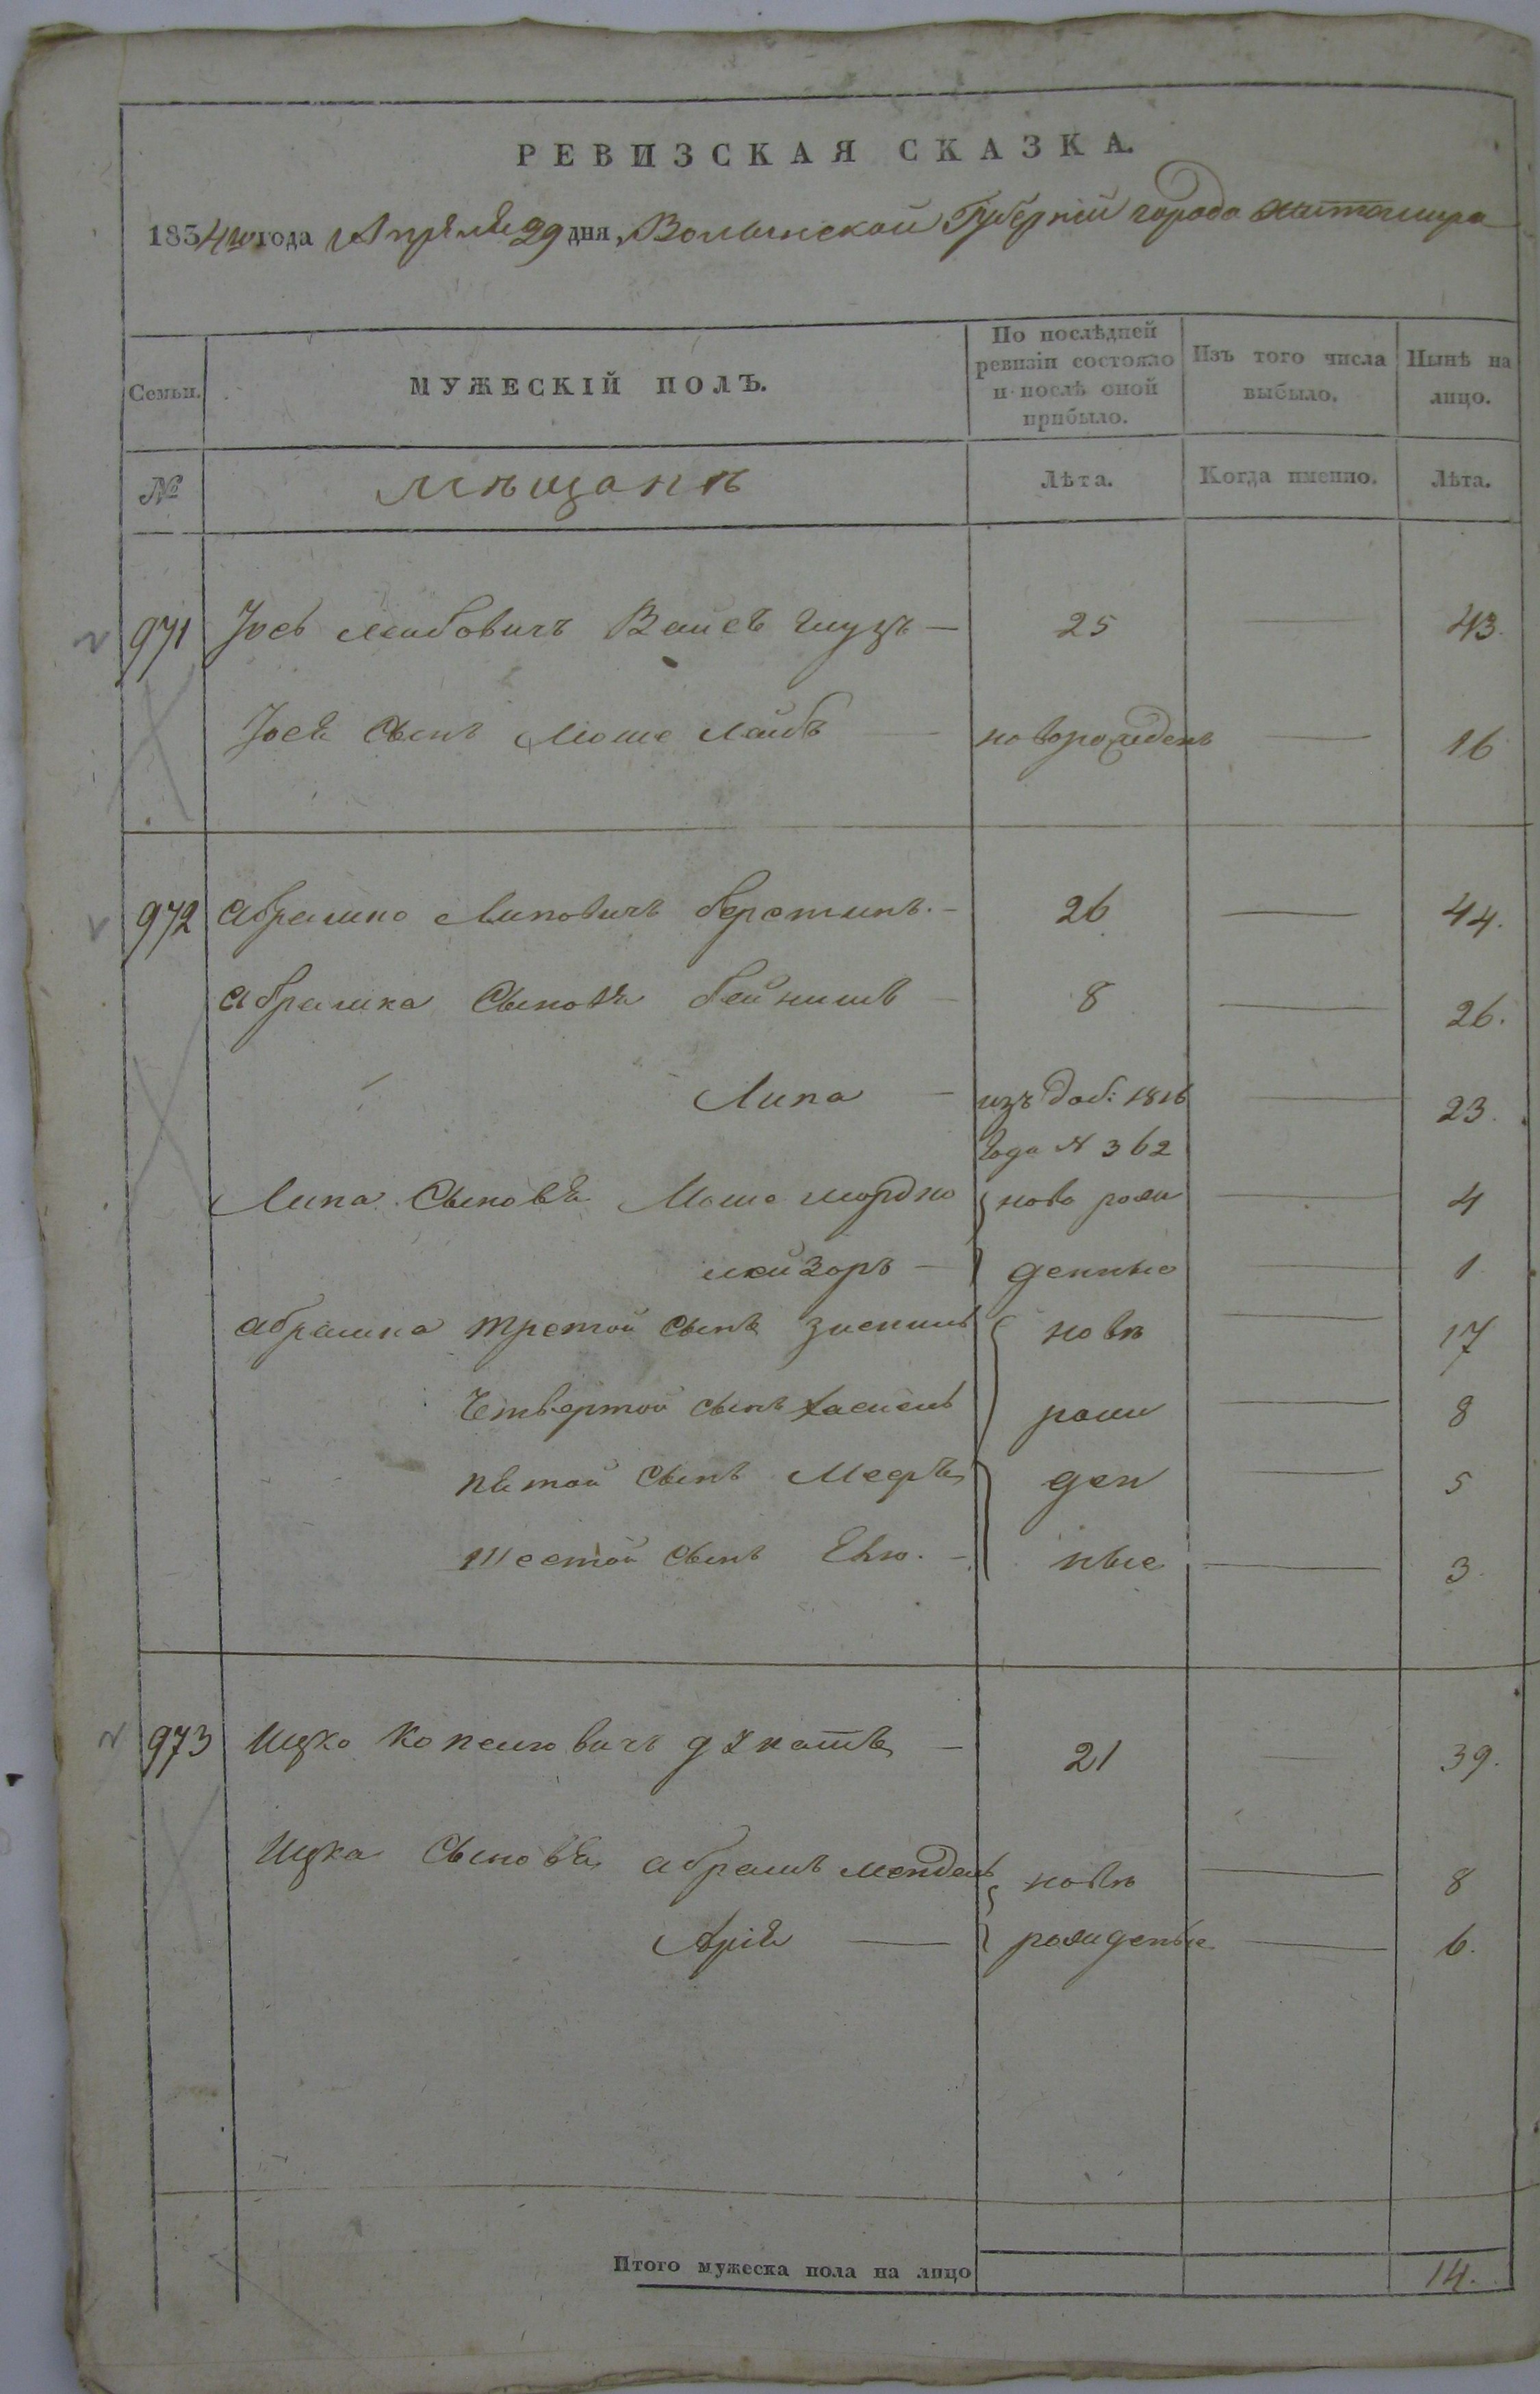 РЕВИЗСКАЯ СКАЗКА.
1834го года Апреля 29 дня, Волынской Губернии города Житомира
Семьи.
МУЖЕСКІЙ ПОЛЪ.
По послѣдней ревизіи состояло и послѣ оной прибыло.
Изъ того числа выбыло.
Нынѣ на лицо.
№
Мѣщанъ
Лѣта.
Когда именно.
Лѣта.
971 Іось Лейбовичъ — 25 — 43.
Іося Сынъ Моше Лайбъ — новорожденъ — 16
972 Абрамко Липовичъ — 26 — 44.
Абрамка Сыновя Бейнишъ — 8 — 26.
Липа — изъ доб: 1816 — 23.
года № 362
Липа Сыновя Моше мордко ново рож — 4
лейзоръ — денные — 1
Абрамка третой сынъ новъ — 17
Четвертой сынъ рож — 8
пятой сынъ Мееръ ден — 5
шестой сынъ — ные — 3
973 Ицко — 21 — 39.
Ицка Сыновя абрамъ мендель новъ — 8
Арія — рожденые — 6.
Итого мужеска пола на лицо 14.